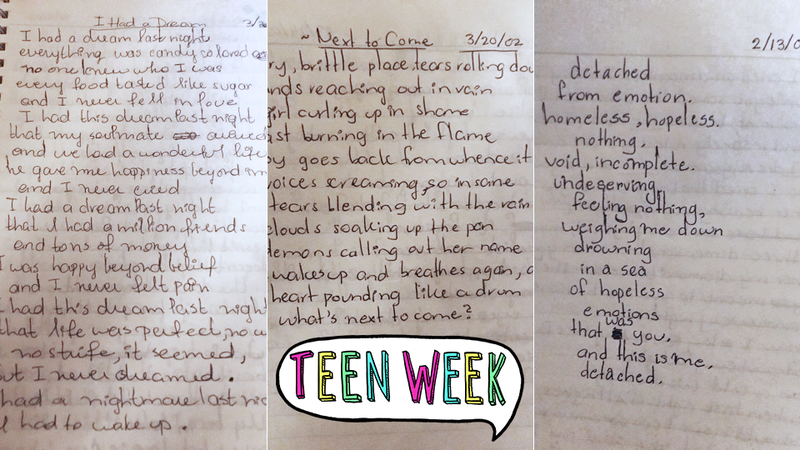 I Had a Dream 3/2
I had a dream last night
everything was candy colored
no one knew who I was
every food tasted like sugar
and I never fell in love
I had this dream last night
that my soulmate
and we had a wonderful life
he gave me happiness beyond
and I never cried
I had a dream last night
that I had a million friends
and tons of money
I was happy beyond belief
and I never felt pain
I had this dream last night
that life was perfect, no
no strife, it seemed,
but I never dreamed.
had a nightmare last nig
I had to wake up.
~ Next to Come 3/20/02
ry, brittle place, tears rolling dow
nds reaching out in vain
irl curling up in shame
ast burning in the flame
oy goes back from whence it
voices screaming, so insane
tears blending with the rain
clouds soaking up the pain
demons calling out her name
wakes up and breathes again, a
heart pounding like a drum
what's next to come?
TEEN WEEK
2/13/0
detached
from emotion.
homeless, hopeless.
nothing.
void, incomplete.
undeserving,
feeling nothing,
weighing me down
drowning
in a sea
of hopeless
emotions
that was you.
and this is me,
detached.